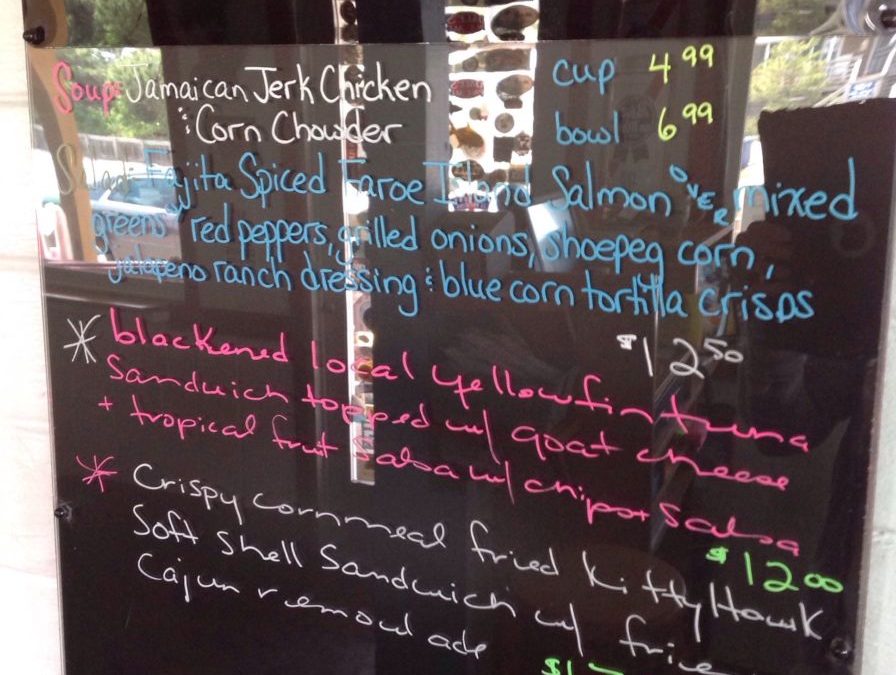 Soup: Jamaican Jerk Chicken cup 4 99
& Corn Chowder bowl 6 99
Salad: Fajita Spiced Faroe Island Salmon over mixed
greens w/ red peppers, grilled onions, shoepeg corn,
jalapeno ranch dressing & blue corn tortilla crisps
$12 50
* blackened local yellowfin tuna
Sandwich topped w/ goat cheese
+ tropical fruit salsa w/ chips + salsa
$12 00
* Crispy cornmeal fried Kitty Hawk
Soft Shell Sandwich w/ fries
Cajun remoulade